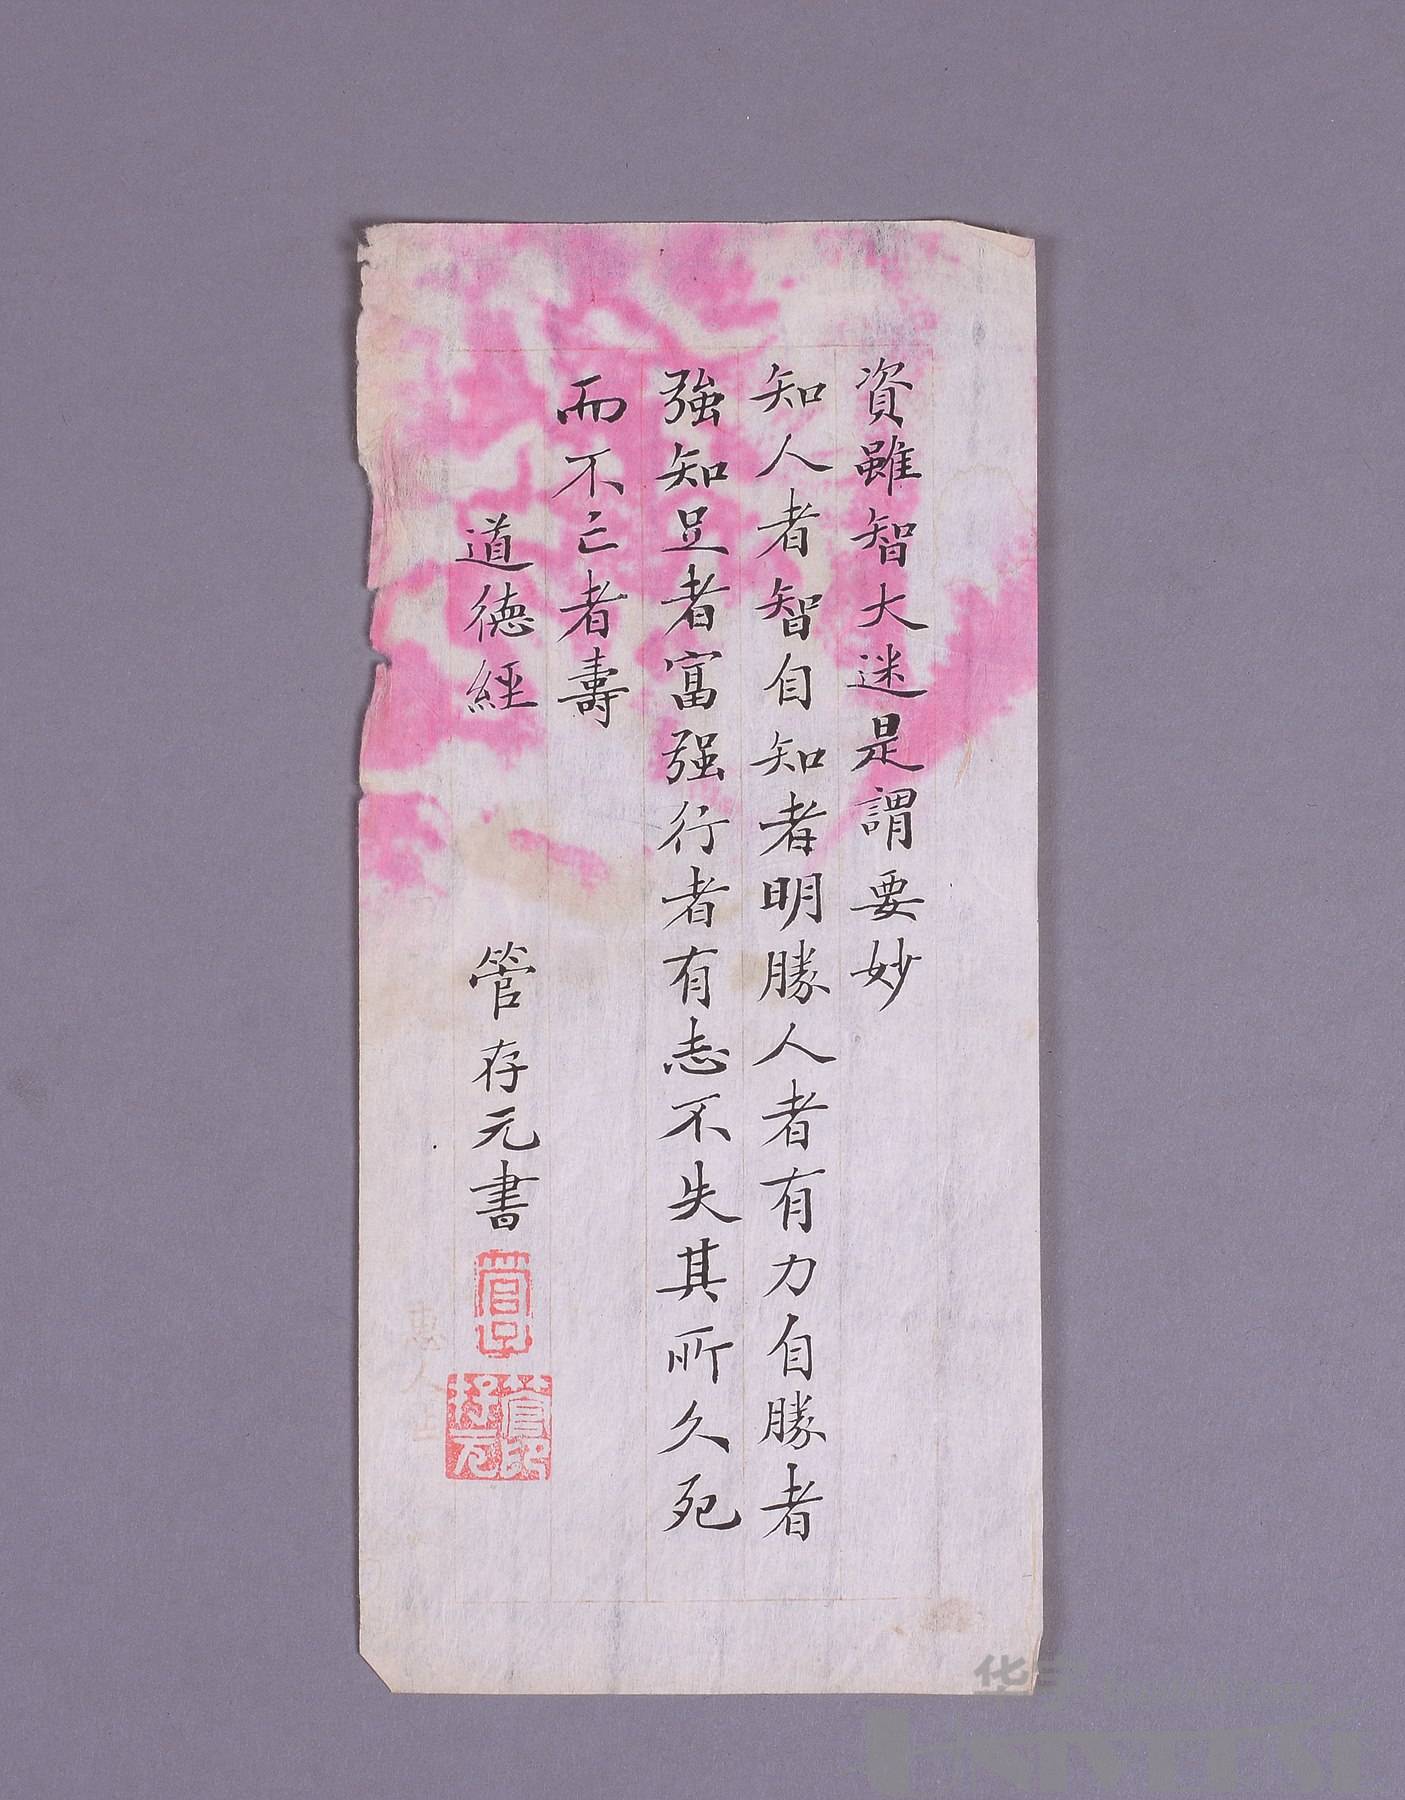 資雖智大迷是謂要妙
知人者智自知者明勝人者有力自勝者
強知足者富强行者有志不失其所久死
而不亡者壽
道德經
管存元書
管印存元